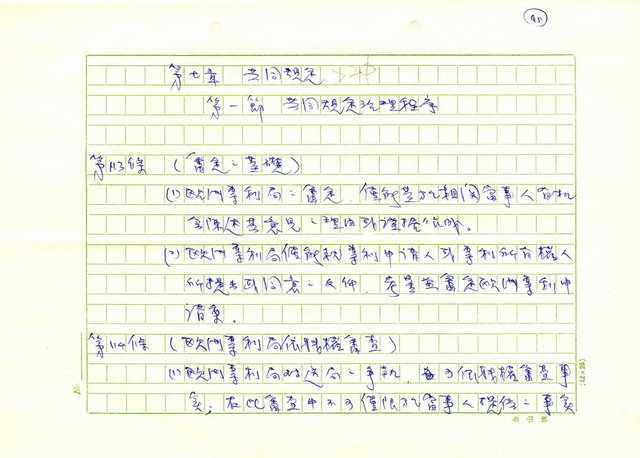 第七章 共同規定
第一節 共同規定治理程序
第113條 (審定之基礎)
(1) 歐洲專利局之審定,僅能基於相關當事人有機
會陳述其意見之理由或證據依附。
(2) 歐洲專利局僅能就專利申請人或專利所有權人
所提出或同意之文件,考量並審定歐洲專利申
請案。
第114條 (歐洲專利局依職權審查)
(1) 歐洲專利局對送局之事執,可依職權審查事
實;在此審查中不可僅限於當事人提供之事實
No.
(12×25)